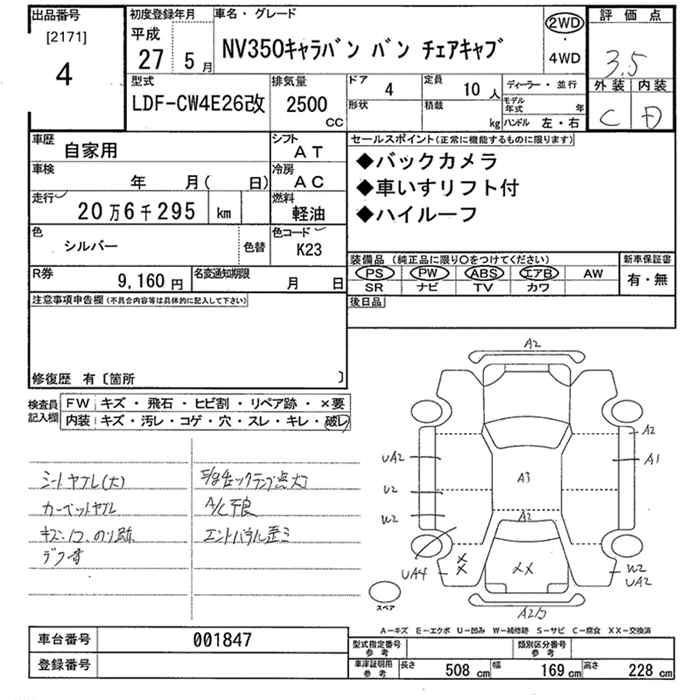 出品番号
[2171]
4
初度登録年月
平成
27 5月
車名・グレード
NV350キャラバン バン チェアキャブ
2WD
・
4WD
評価点
3.5
外装 内装
C D
型式
LDF-CW4E26改
排気量
2500
CC
ドア 4
定員 10 人
ディーラー・並行
形状
積載 kg
モデル年式 年
ハンドル 左・右
車歴
自家用
シフト
AT
車検
年 月( 日)
冷房
AC
走行
20万6千295 km
燃料
軽油
色
シルバー
色替
色コード
K23
R券
9,160 円
名変通知期限
月 日
セールスポイント(正常に機能するものに限ります)
◆バックカメラ
◆車いすリフト付
◆ハイルーフ
装備品 (純正品に限り○をつけてください)
PS PW ABS エアB AW
SR ナビ TV カワ
新車保証書
有・無
後日品
注意事項申告欄(不具合内容等は具体的に記入して下さい)
修復歴 有〔箇所 〕
検査員
記入欄
FW キズ・飛石・ヒビ割・リペア跡・×要
内装 キズ・汚レ・コゲ・穴・スレ・キレ・破レ
シートヤブレ(大)
カーペットヤブレ
キズ、コゲ、のり跡
A/C不良
A2
A2
UA2
A1
A3
U2
W2
A2
UA4
XX
XX
W2
UA2
スペア
A-キズ E-エクボ U-凹み W-補修跡 S-サビ C-腐食 XX-交換済
車台番号 001847
登録番号
型式指定番号
参考
類別区分番号
参考
車庫証明用
参考
長さ 508 cm
幅 169 cm
高さ 228 cm